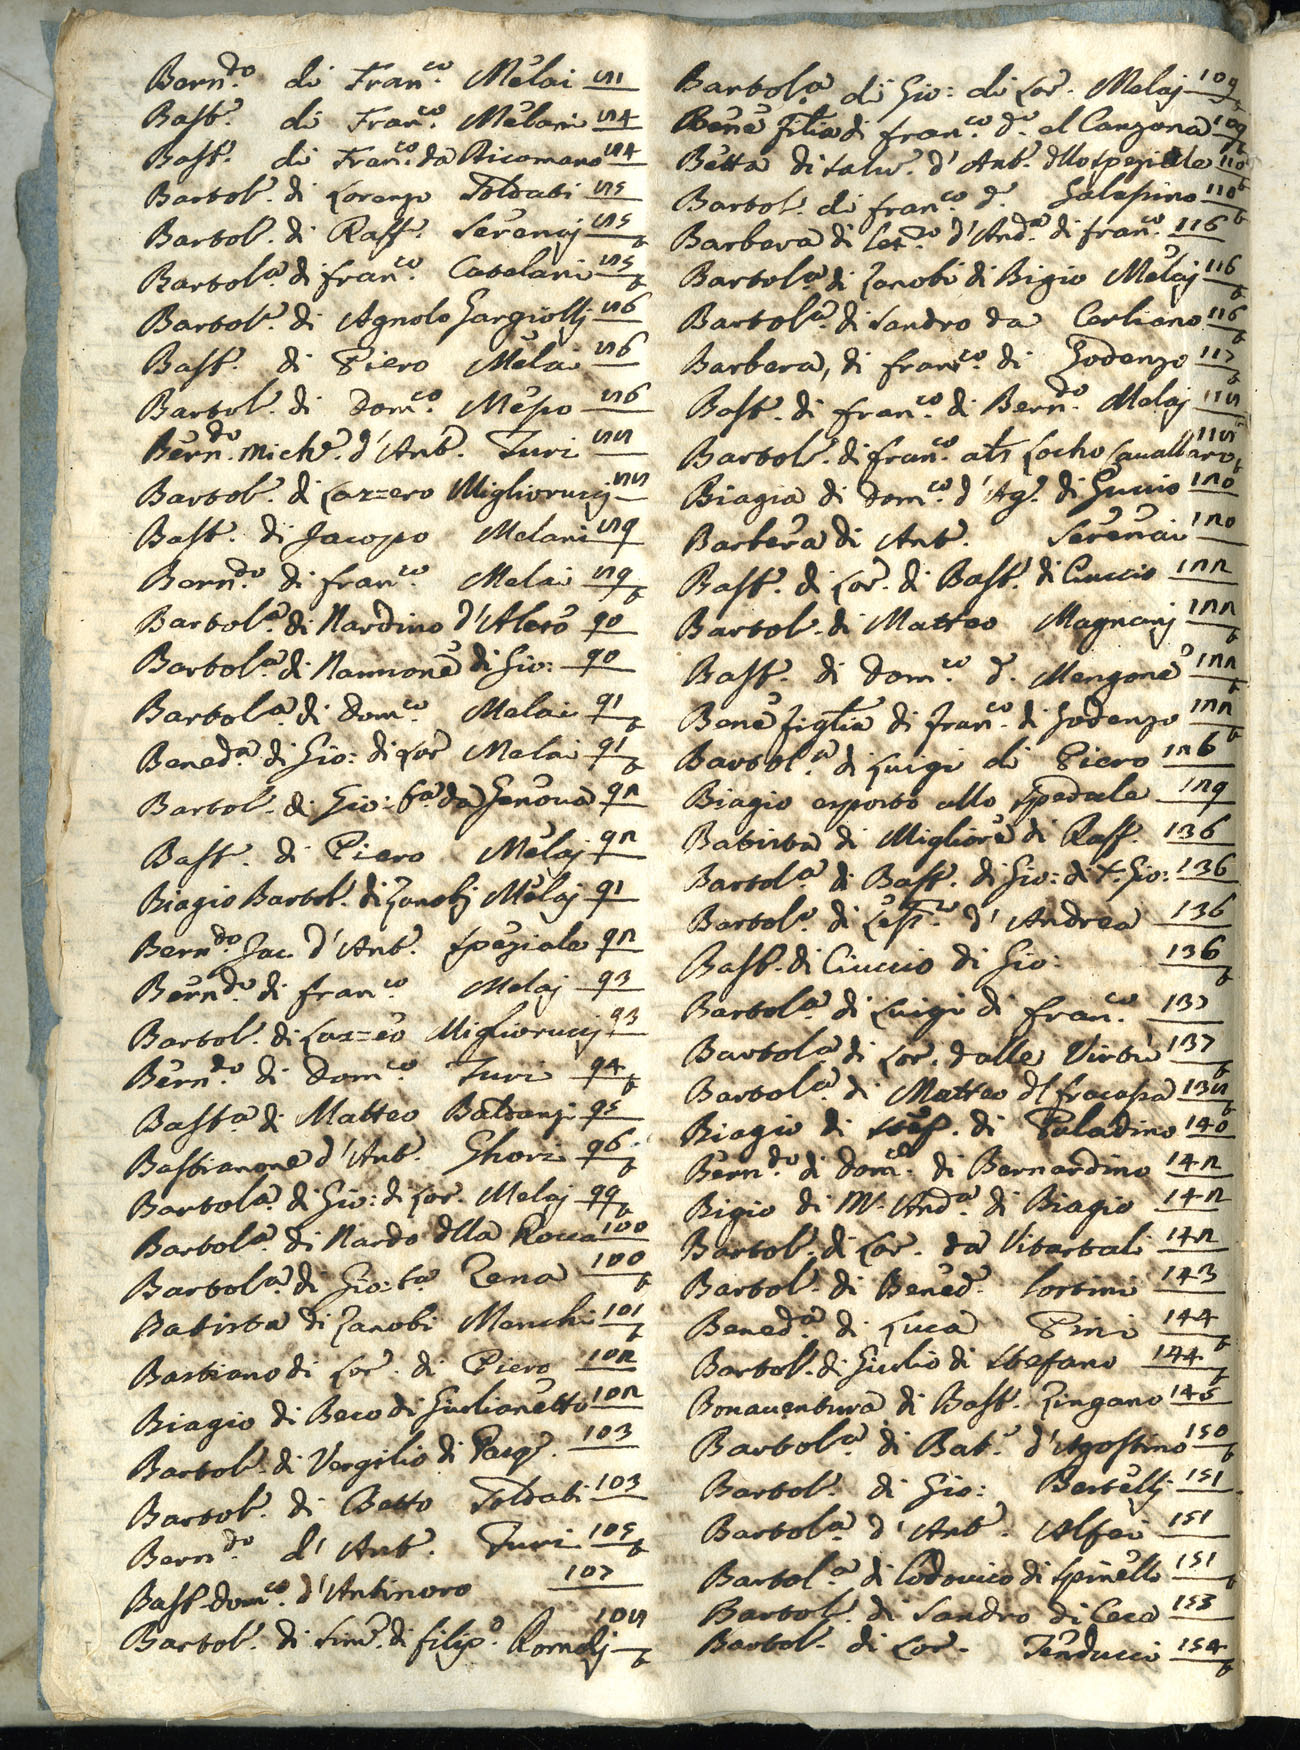 Bern.do di Fran.co Melai 81
Bast. di Fran.co Melani 84
Bast. di Fran.co da Bicomano 84
Bartol. di Lorenzo Soldati 85
Bartol. di Raff. Serenaj 85 b
Bartol.a di fran.co Catelani 85 b
Bartol. di Agnolo Gargiollj 86
Bast. di Piero Melai 86
Bartol. di Dom.co Mespo 86
Bern.do Mich. d'Ant. Turi 88
Bartol. di Lazzero Migliorucij 88
Bast. di Jacopo Melani 89
Bern.do di fran.co Melai 89 b
Bartol.a di Nardino d'Aless.o 90
Bartol.a di Nannone di Gio: 90
Bartol.a di Dom.co Melai 91 b
Bened.a di Gio: di Lor. Melai 91 b
Bartol. di Gio: b.a da Genova 92
Bast. di Piero Melaj 92
Biagio Bartol. di Zanobj Melaj 91
Bern.do Jac. d'Ant. speziale 92
Bern.do di fran.co Melaj 93
Bartol. di Lazzeo Migliorucij 93
Bern.do di Dom.co Turi 94 b
Bast.a di Matteo Baldanzi 95
Bastianone d'Ant. Ghori 96 b
Bartol.a di Gio: di Lor. Melaj 99 b
Bartol.a di Nardo dlla Rocca 100
Bartol.a di Gio: b.a Zena 100 b
Batista di Zanobi Menchi 101 b
Bastiano di Lor. di Piero 102
Biagio di Beco di Giulianetto 102
Bartol. di Vergilio di Pasq. 103
Bartol. di Betto Soldati 103
Bern.do d'Ant. Turi 105 b
Bast. Dom.co d'Antinoro 107
Bartol. di Sim. di filip.o Romolj 108 b
Bartol.a di Gio: di Lor. Melaj 109 b
Bene filia di fran.co d.o el Canzona 109 b
Betta di salv. d'Ant. dllo speziale 110 b
Bartol. di fran.co d. Galesino 110 b
Barbera di d'And.a di fran.co 116
Bartol.a di Zanobi di Bigio Melaj 116 b
Bartol.a di Sandro da Cerliano 116 b
Barbera, di fran.co di Godenzo 117 b
Bast. di fran.co di Bern.do Melaj 118
Bartol. di fran.co als Locho Cavallaro 118 b
Biagia di Dom.co d'Ag. di Guccio 120
Barbera di Ant. Serenai 120
Bast. di Lor. di Bast. di Ciuccio 122
Bartol. di Matteo Magnanj 122 b
Bast. di Dom.co d. Mengone 122 b
Bene figlia di fran.co di Godenzo 122 b
Bartol.a di Luigi di Piero 126
Biagio esposto allo spedale 129
Batista di Migliore di Raff. 136
Bartol.a di Bast. di Gio: di S. Gio: 136
Bartol.a di d'Andrea 136
Bast. di Ciuccio di Gio: 136 b
Bartol.a di Luigi di fran.co 137
Bartol.a di Lor. dalle Virtù 137 b
Bartol.a di Matteo dl fracassa 138 b
Biagio di di Paladino 140
Bern.do di Dom.co di Bernardino 142
Bigio di M. And.a di Biagio 142
Bartol. di Lor. da Vitartali 142
Bartol. di Bened. Cortini 143
Bened.a di Luca Pini 144 b
Bartol. di Giulio di Stefano 144 b
Bonaventura di Bast. Zingano 146
Bartol.a di Bat. d'Agostino 150 b
Bartol. di Gio: Bertellj 151
Bartol.a d'Ant. Alfei 151
Bartol.a di Lodovico di Spinello 151 b
Bartol. di Sandro di Ceca 153
Bartol. di Lor. Tenducci 154 b